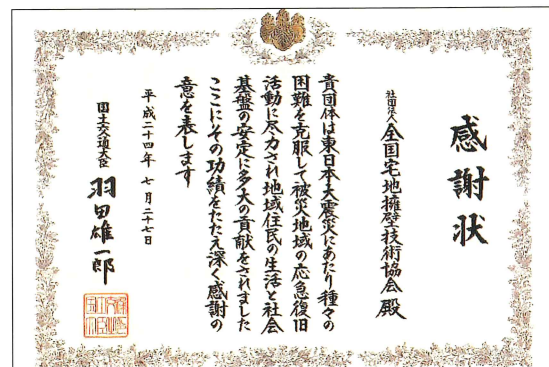 感謝状
社団法人全国宅地擁壁技術協会 殿
貴団体は東日本大震災にあたり種々の
困難を克服して被災地域の応急復旧
活動に尽力され地域住民の生活と社会
基盤の安定に多大の貢献をされました
ここにその功績をたたえ深く感謝の
意を表します
平成二十四年 七月二十七日
国土交通大臣 羽田雄一郎